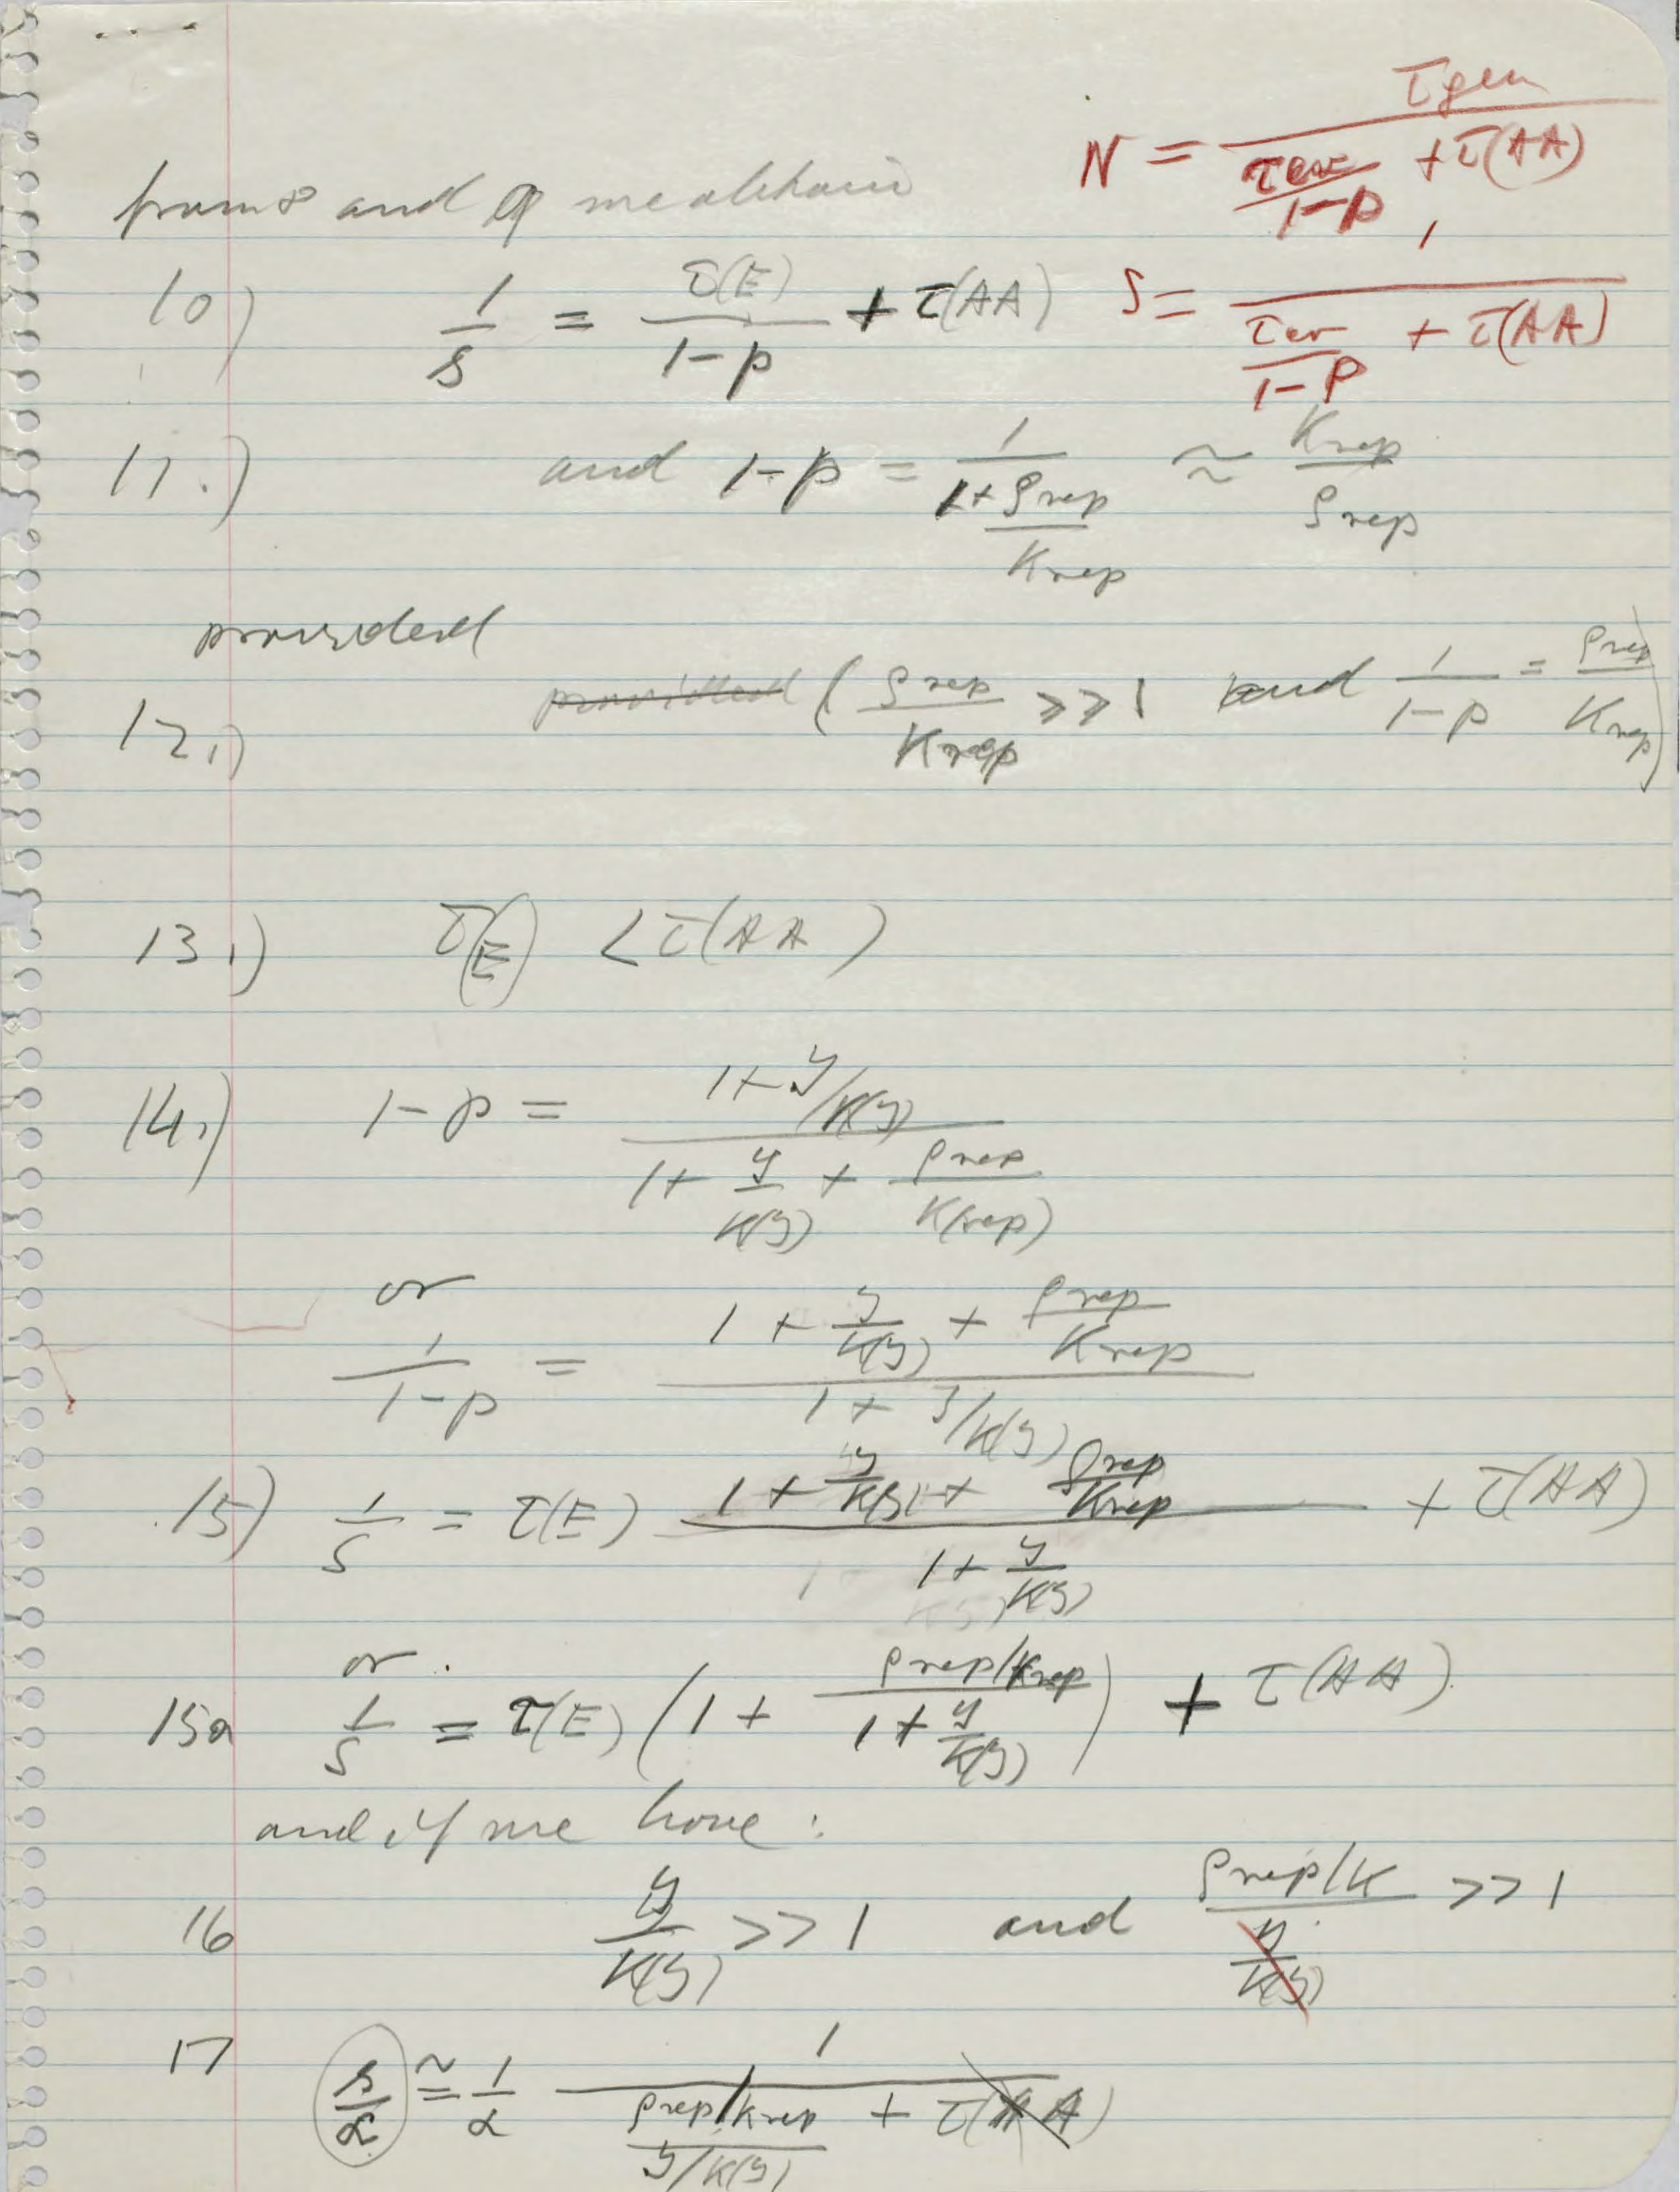 N = τgen / (τex/(1-p) + τ(AA))
from 8 and 9 we obtain
10) 1/s = τ(E)/(1-p) + τ(AA)
S = 1 / (τex/(1-p) + τ(AA))
11.) and 1-p = 1/(1+ ρrep/Krep) ≈ Krep/ρrep
provided
12.) ~~provided~~ (ρrep/Krep >> 1 and 1/(1-p) = ρrep/Krep)
13.) τ(E) < τ(AA)
14.) 1-p = (1+ y/K(y)) / (1+ y/K(y) + ρrep/K(rep))
or
1/(1-p) = (1 + y/K(y) + ρrep/Krep) / (1 + y/K(y))
15) 1/s = τ(E) (1 + y/K(y) + ρrep/Krep) / (1+ y/K(y)) + τ(AA)
or
15a 1/s = τ(E) (1 + (ρrep/Krep)/(1+ y/K(y))) + τ(AA)
and if we have:
16 y/K(y) >> 1 and (ρrep/K)/~~(y/K(y))~~ >> 1
17 s/α ≅ 1/α 1/((ρrep/Krep)/(y/K(y)) + ~~τ(AA)~~)